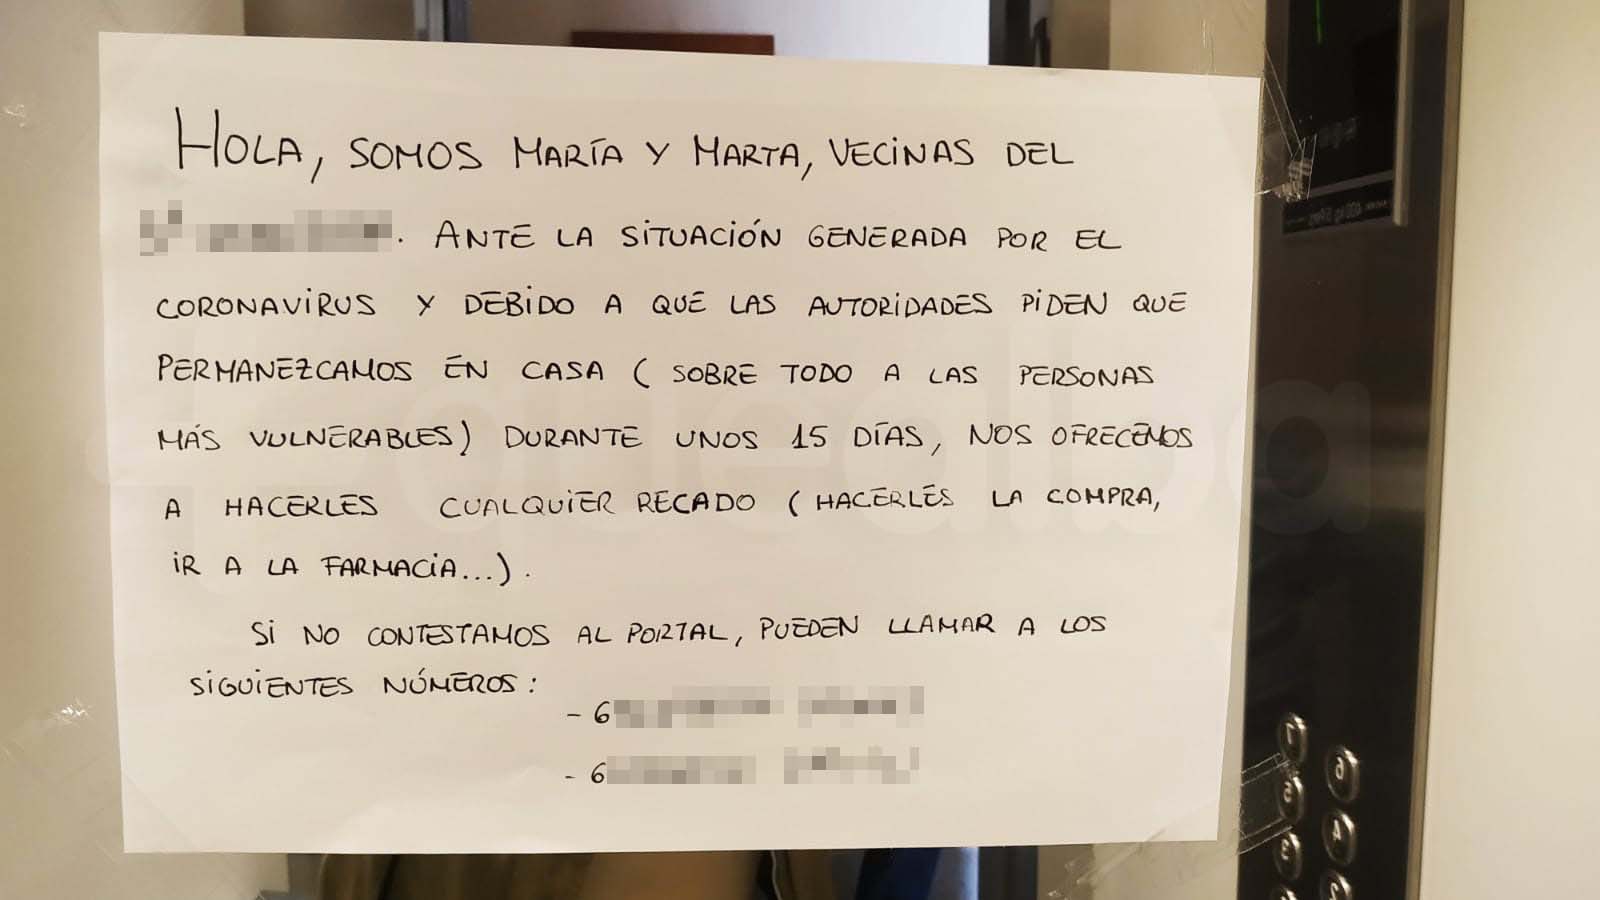 HOLA, SOMOS MARÍA Y MARTA, VECINAS DEL
. ANTE LA SITUACIÓN GENERADA POR EL
CORONAVIRUS Y DEBIDO A QUE LAS AUTORIDADES PIDEN QUE
PERMANEZCAMOS EN CASA ( SOBRE TODO A LAS PERSONAS
MÁS VULNERABLES) DURANTE UNOS 15 DÍAS, NOS OFRECEMOS
A HACERLES CUALQUIER RECADO ( HACERLES LA COMPRA,
IR A LA FARMACIA...).
SI NO CONTESTAMOS AL PORTAL, PUEDEN LLAMAR A LOS
SIGUIENTES NÚMEROS:
- 6
- 6